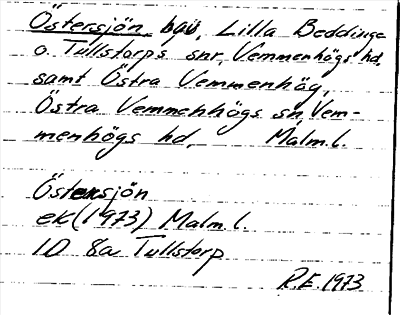 Östersjön, bqu, Lilla Beddinge
o. Tullstorps snr, Vemmenhögs hd,
samt Östra Vemmenhög,
Östra Vemmenhögs sn, Vem-
menhögs hd, Malm.l.
Östersjön
ek (1973) Malm.l.
1D 8a Tullstorp
R.E. 1973